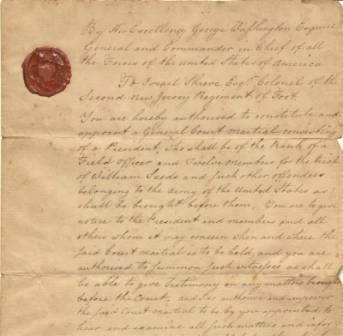 By His Excellency George Washington Esquire
General and Commander in Chief of all
the Forces of the United States of America
To Israel Shreve Esqr. Colonel of the
Second New Jersey Regiment of Foot.
You are hereby authorised to constitute and
appoint a General Court martial consisting
of a President, who shall be of the Rank of a
Field Officer and Twelve members for the trial
of William Seeds and such other offenders
belonging to the army of the United States as
shall be brought before them; You are to give
notice to the President and members and all
others whom it may concern when and where the
said Court martial is to be held, and you are
authorised to summon such witnesses as shall
be able to give Testimony in any matters brought
before the Court; and do authorise and impower
the said Court martial to be by you appointed to
hear and examine all such matters and